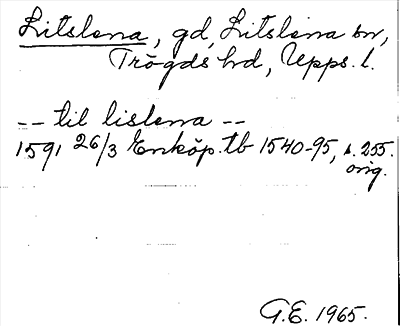 Litslena, gd, Litslena sn,
Trögds hd, Upps. l.
-- til lislena --
1591 26/3 Enköp. tb 1540-95, s. 255.
orig.
G.E. 1965.